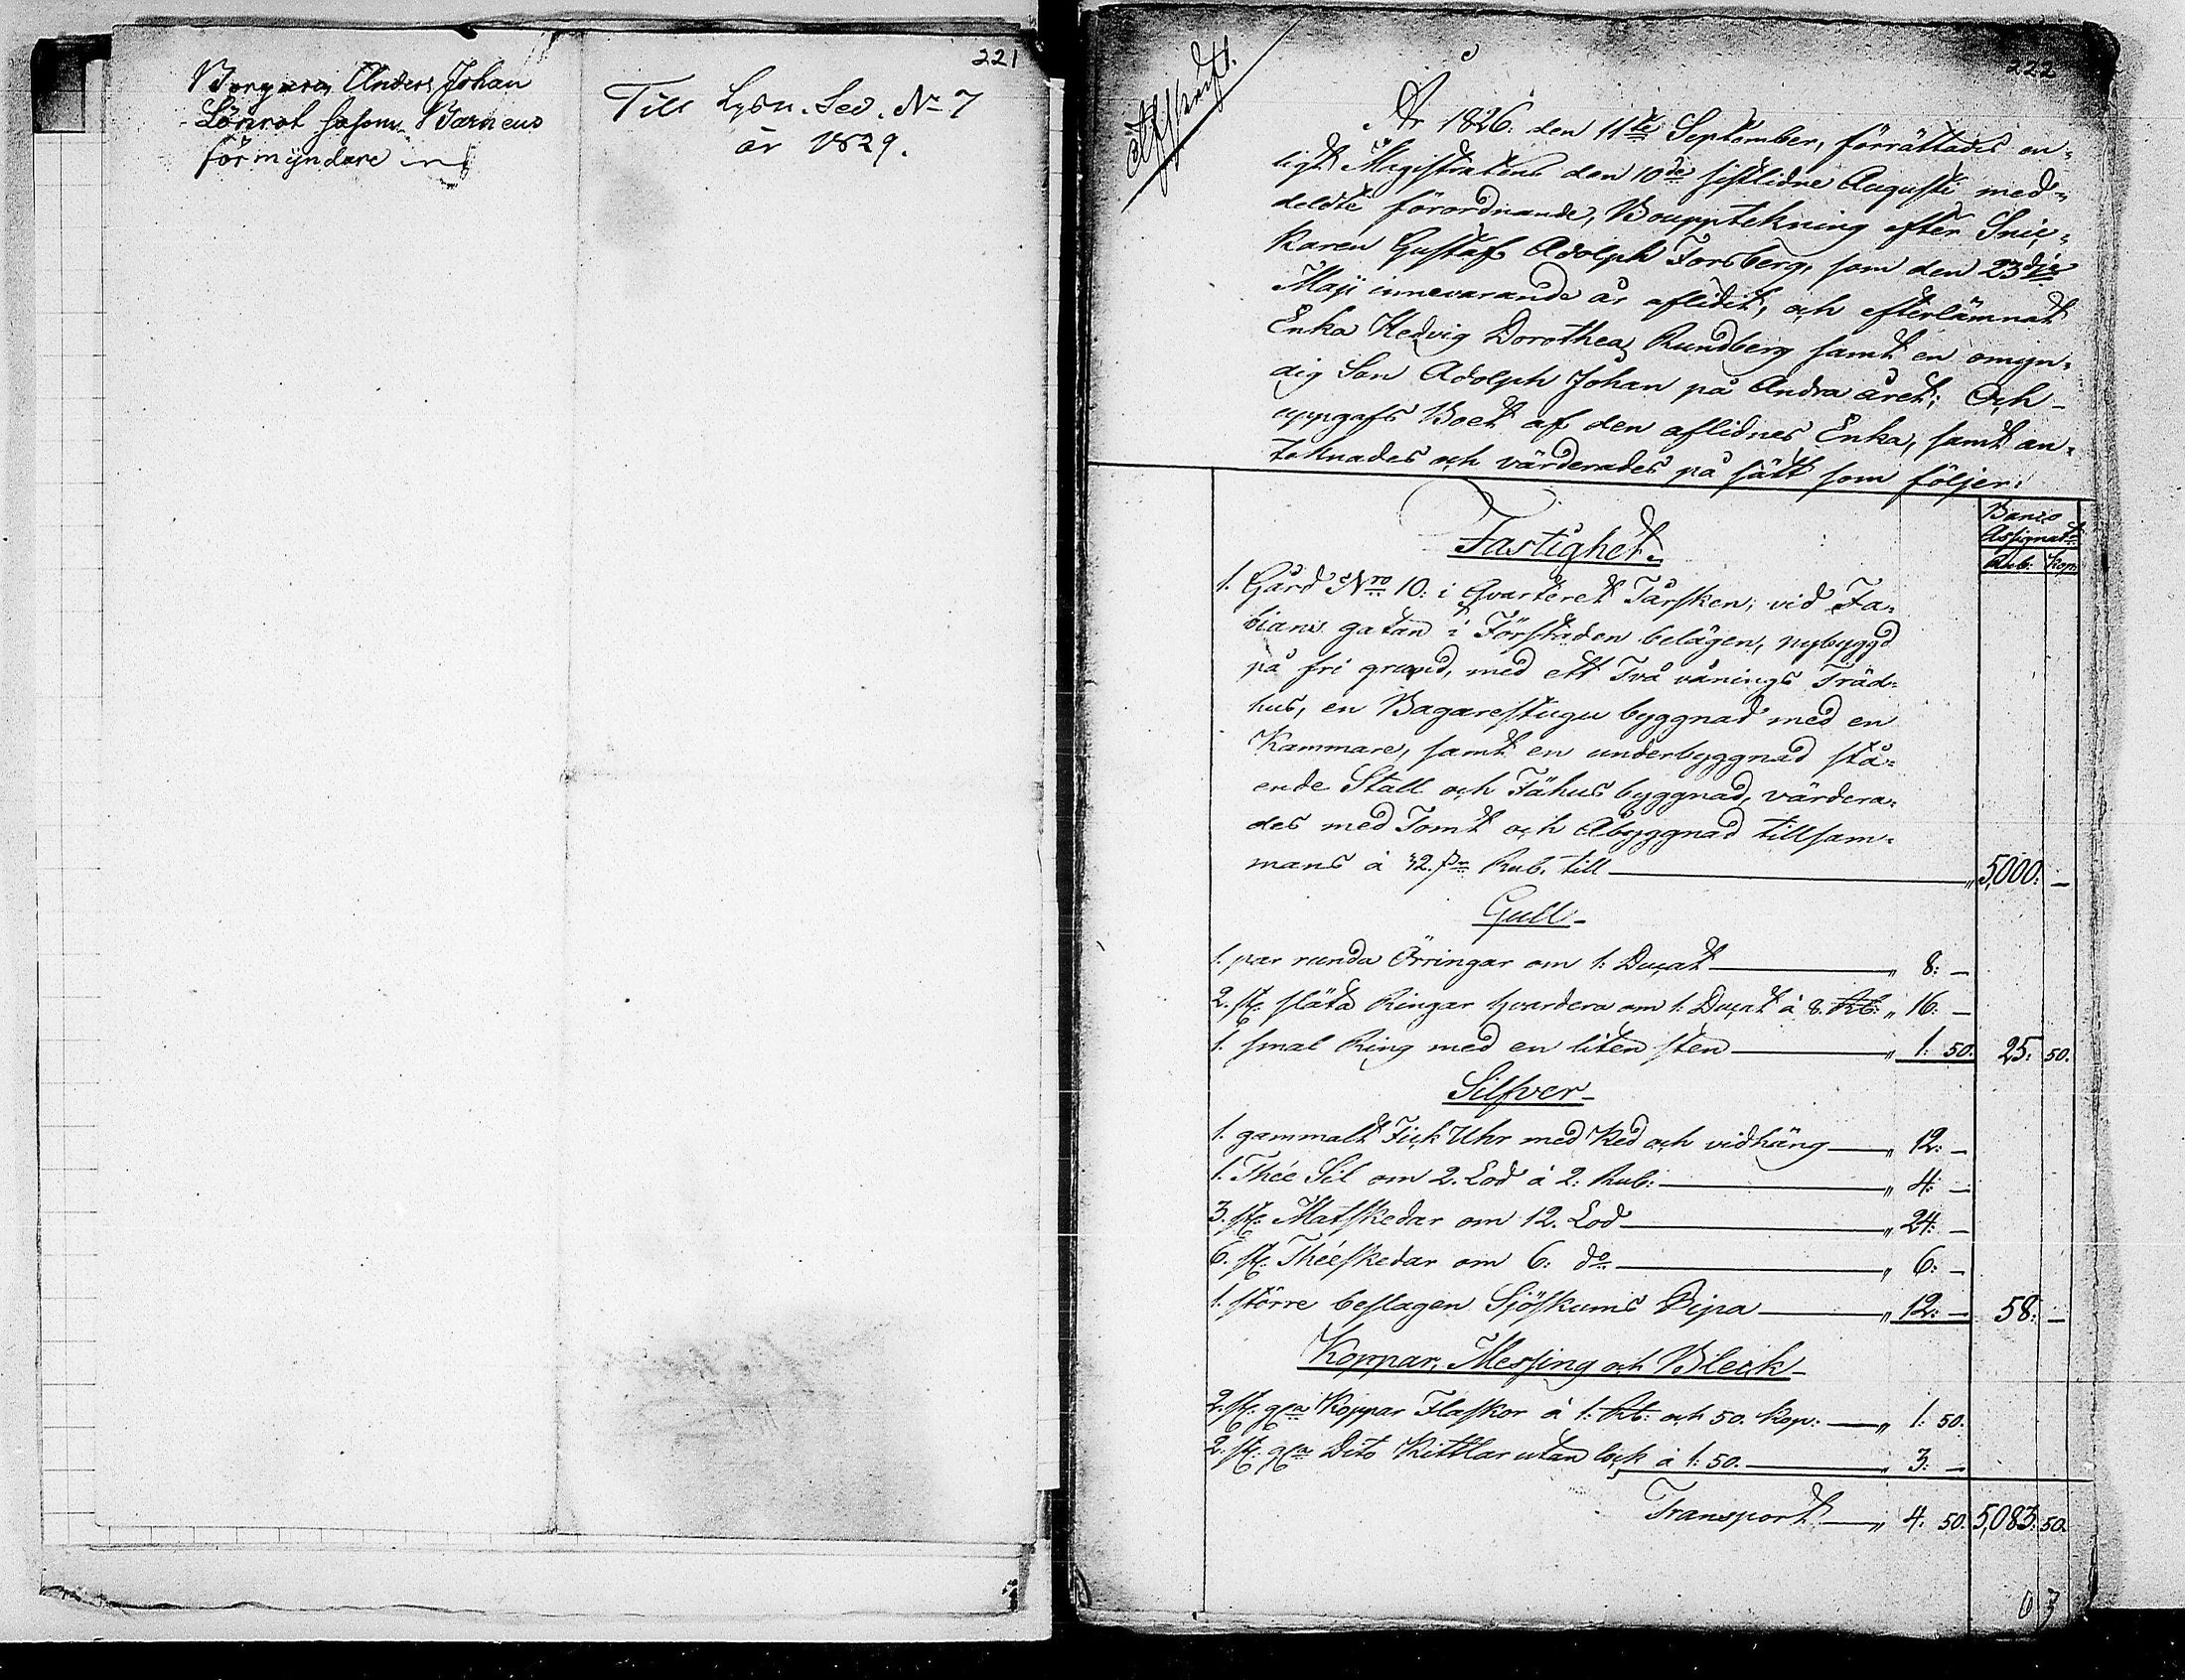 221
Borgaren Anders Johan
Lönrot såsom Barnens
förmyndare
Till Lysn. Sed. No 7
år 1829.
222
Afskrift.
År 1826. den 11te September, förrättades en-
ligt Magistratens den 10de sistlidne Augusti med-
deldte förordnande, Bouppteckning efter Snic-
karen Gustaf Adolph Forsberg, som den 23dje
Maji innevarande år aflidit, och efterlämnat
Enka Hedvig Dorothea Rundberg samt en omyn-
dig Son Adolph Johan på Andra året; Och
uppgafs Boet af den aflidnes Enka, samt an-
teknades och värderades på sätt som följer:
Banco
Assignat.
Rub. Kop.
Fastighet.
1. Gård Nro 10: i Qvarteret Tårsken, vid Fa-
bians gatan i Förstaden belägen, nybyggd
på fri grund, med ett Två vånings Träd-
hus, en Bagarestugu byggnad med en
Kammare, samt en underbyggnad stå-
ende Stall och Fähus byggnad, värdera-
des med Tomt och Åbyggnad tillsam-
mans á Rub. till — " 5,000: —
Gull
1. par runda Örringar om 1: Ducat — " 8: —
2. st: släta Ringar hvardera om 1: Ducat á 8. Rb: " 16: —
1. smal Ring med en liten sten — " 1: 50. 25: 50.
Silfver
1. gammalt Fick Uhr med Ked och vidhäng — " 12: —
1. Thée Sil om 2. Lod á 2: Rub: — " 4: —
3. st: Matskedar om 12. Lod — " 24: —
6. st: Théeskedar om 6: do — " 6: —
1. större beslagen Sjöskums Pipa — " 12: — 58: —
Koppar, Messing och Bleck
2. st: gla Koppar Flaskor á 1: Rb: och 50. Kop: — " 1: 50.
2. st: gla Dito Kittlar utan lock á 1: 50. — " 3: —
Transport — " 4. 50. 5,083: 50.